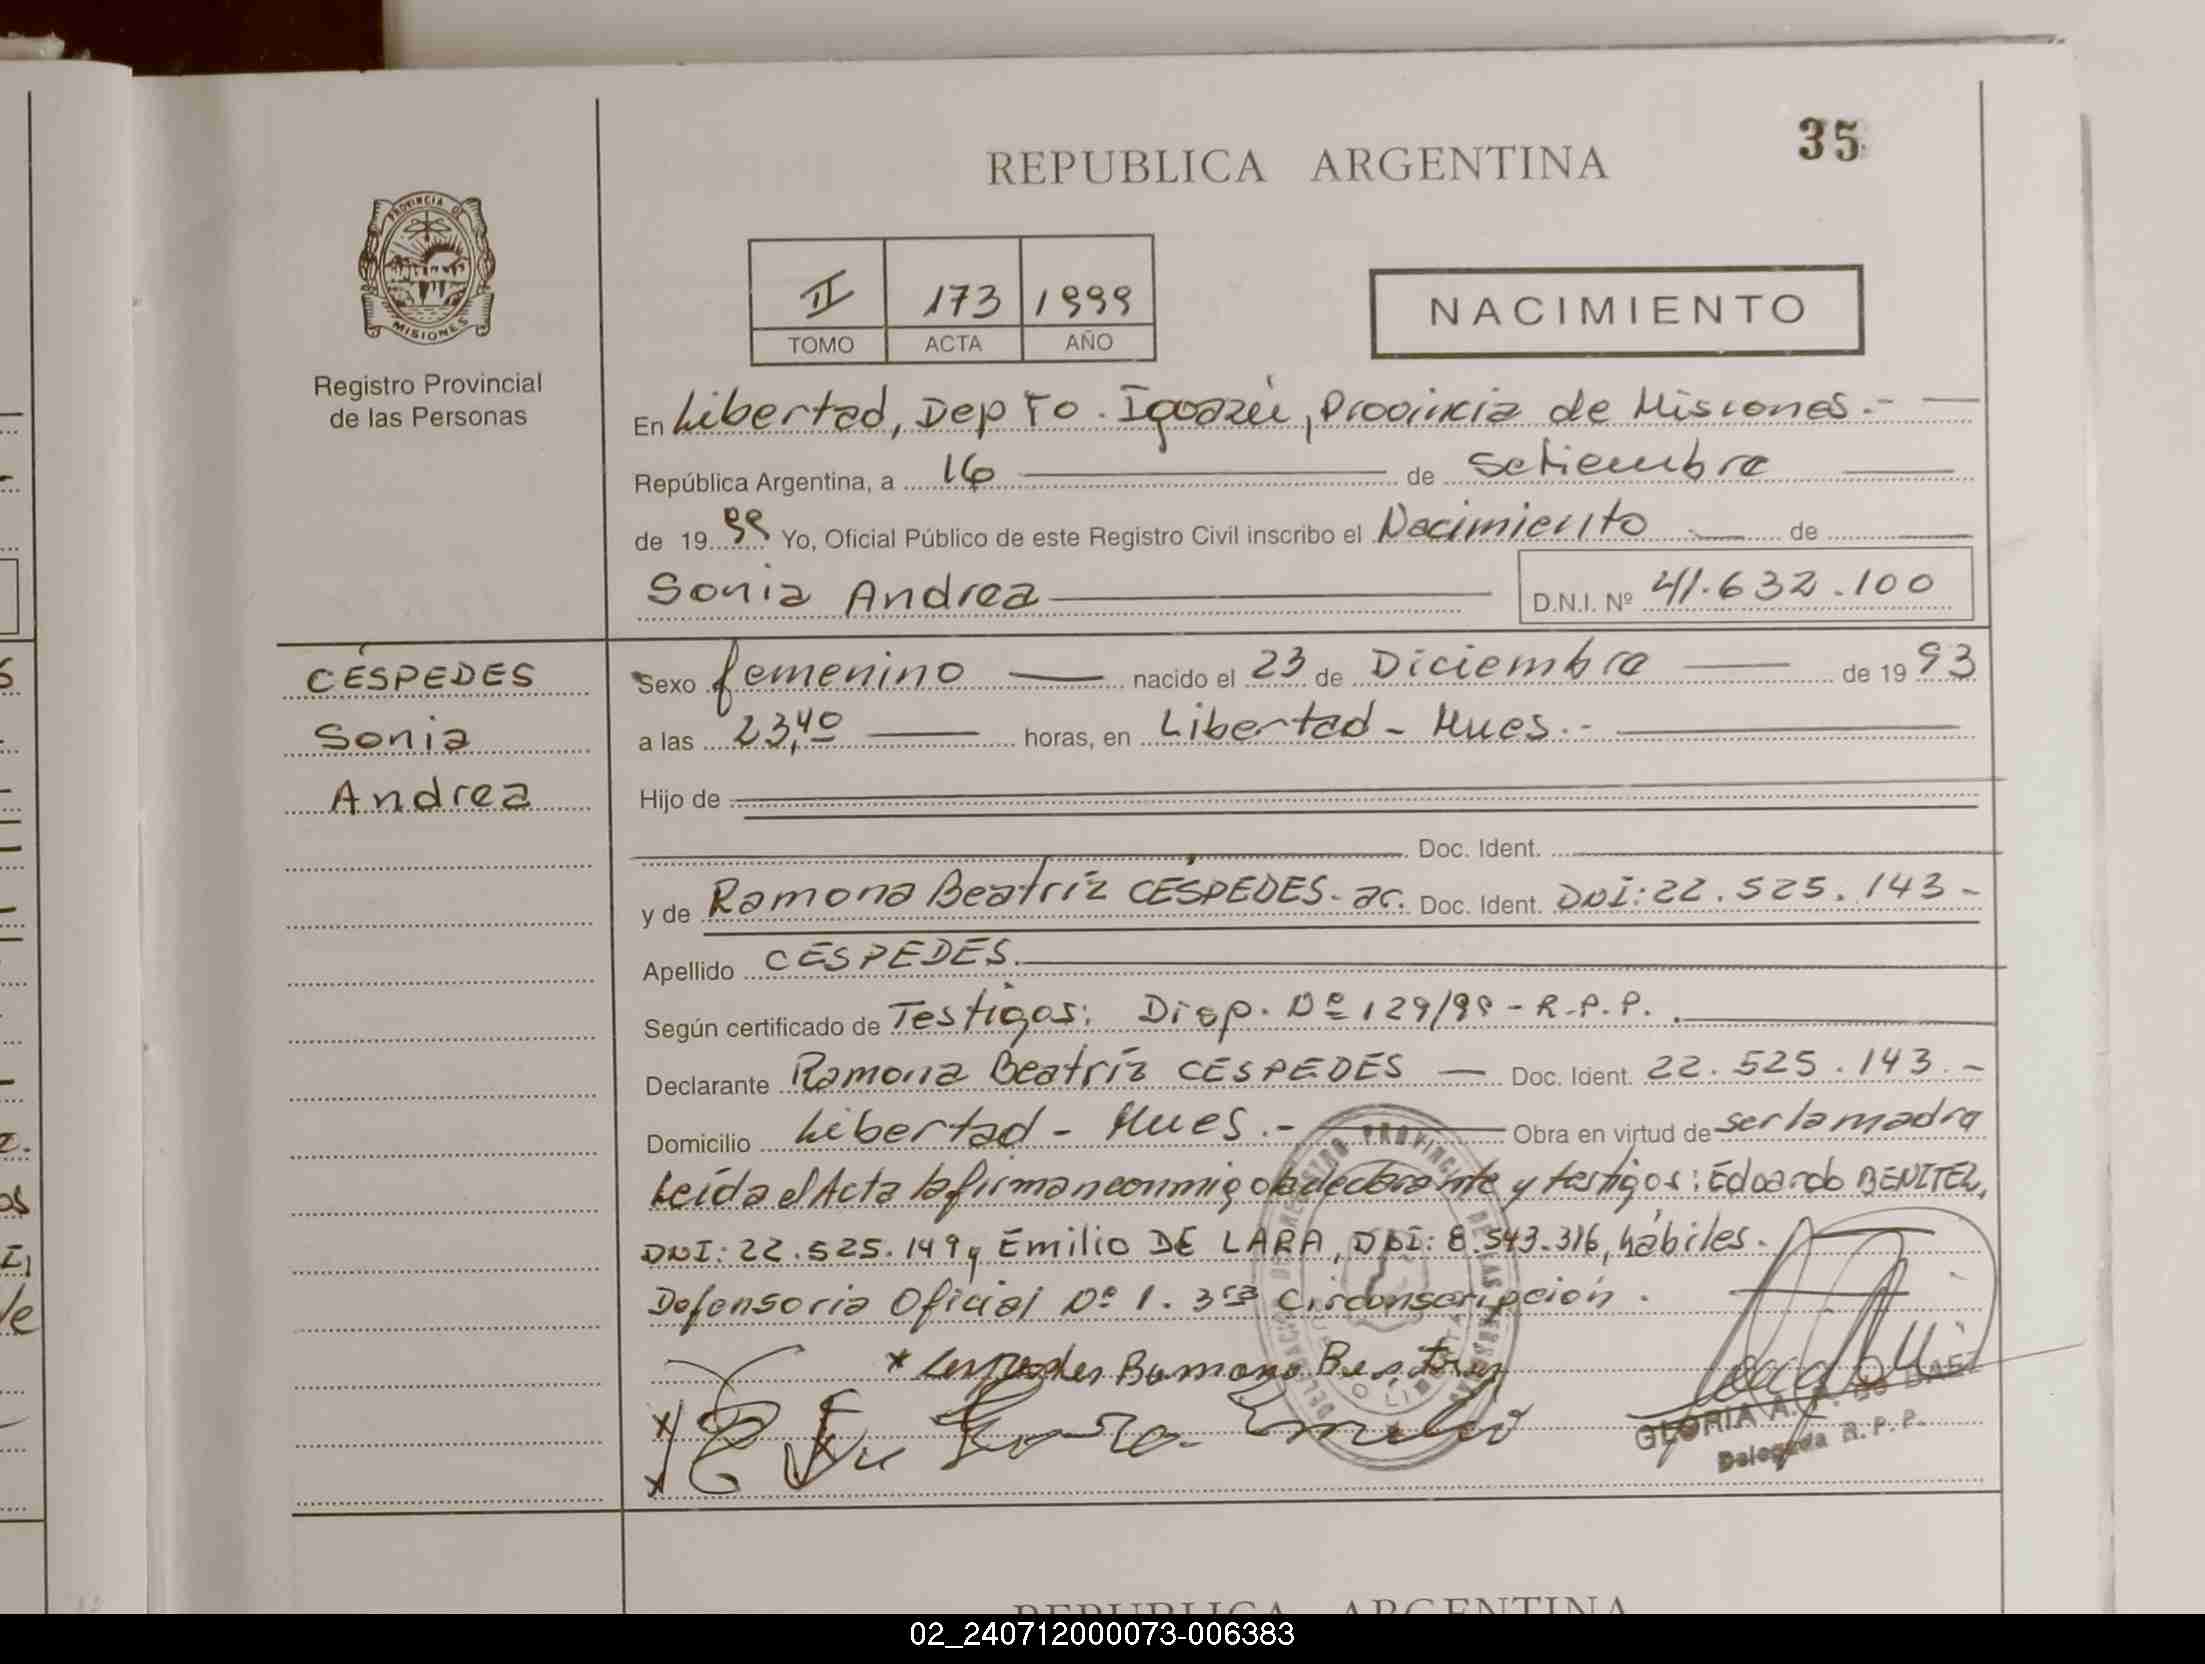 35
REPUBLICA ARGENTINA
PROVINCIA DE
MISIONES
Registro Provincial
de las Personas
II 173 1999
TOMO ACTA AÑO
NACIMIENTO
En Libertad, Depto. Iguazú, Provincia de Misiones.-
República Argentina, a 16 de Setiembre
de 1999 Yo, Oficial Público de este Registro Civil inscribo el Nacimiento de
Sonia Andrea D.N.I. Nº 41.632.100
CÉSPEDES
Sonia
Andrea
Sexo femenino nacido el 23 de Diciembre de 1993
a las 23,40 horas, en Libertad - Mnes.-
Hijo de
Doc. Ident.
y de Ramona Beatríz CÉSPEDES- ac. Doc. Ident. DNI: 22.525.143-
Apellido CÉSPEDES.
Según certificado de Testigos: Disp. Nº 129/99 - R.P.P.
Declarante Ramona Beatríz CÉSPEDES Doc. Ident. 22.525.143.-
Domicilio Libertad - Mnes.- Obra en virtud de ser la madre
Leída el Acta la firman conmigo la declarante y testigos: Eduardo BENITEZ,
DNI: 22.525.149 y Emilio DE LARA, DNI: 8.543.316, hábiles.
Defensoria Oficial Nº 1. 3ra Circunscripción.
* Cespedes Ramona Beatriz
Emilio
GLORIA A.
Delegada R.P.P.
REPUBLICA ARGENTINA
02_240712000073-006383